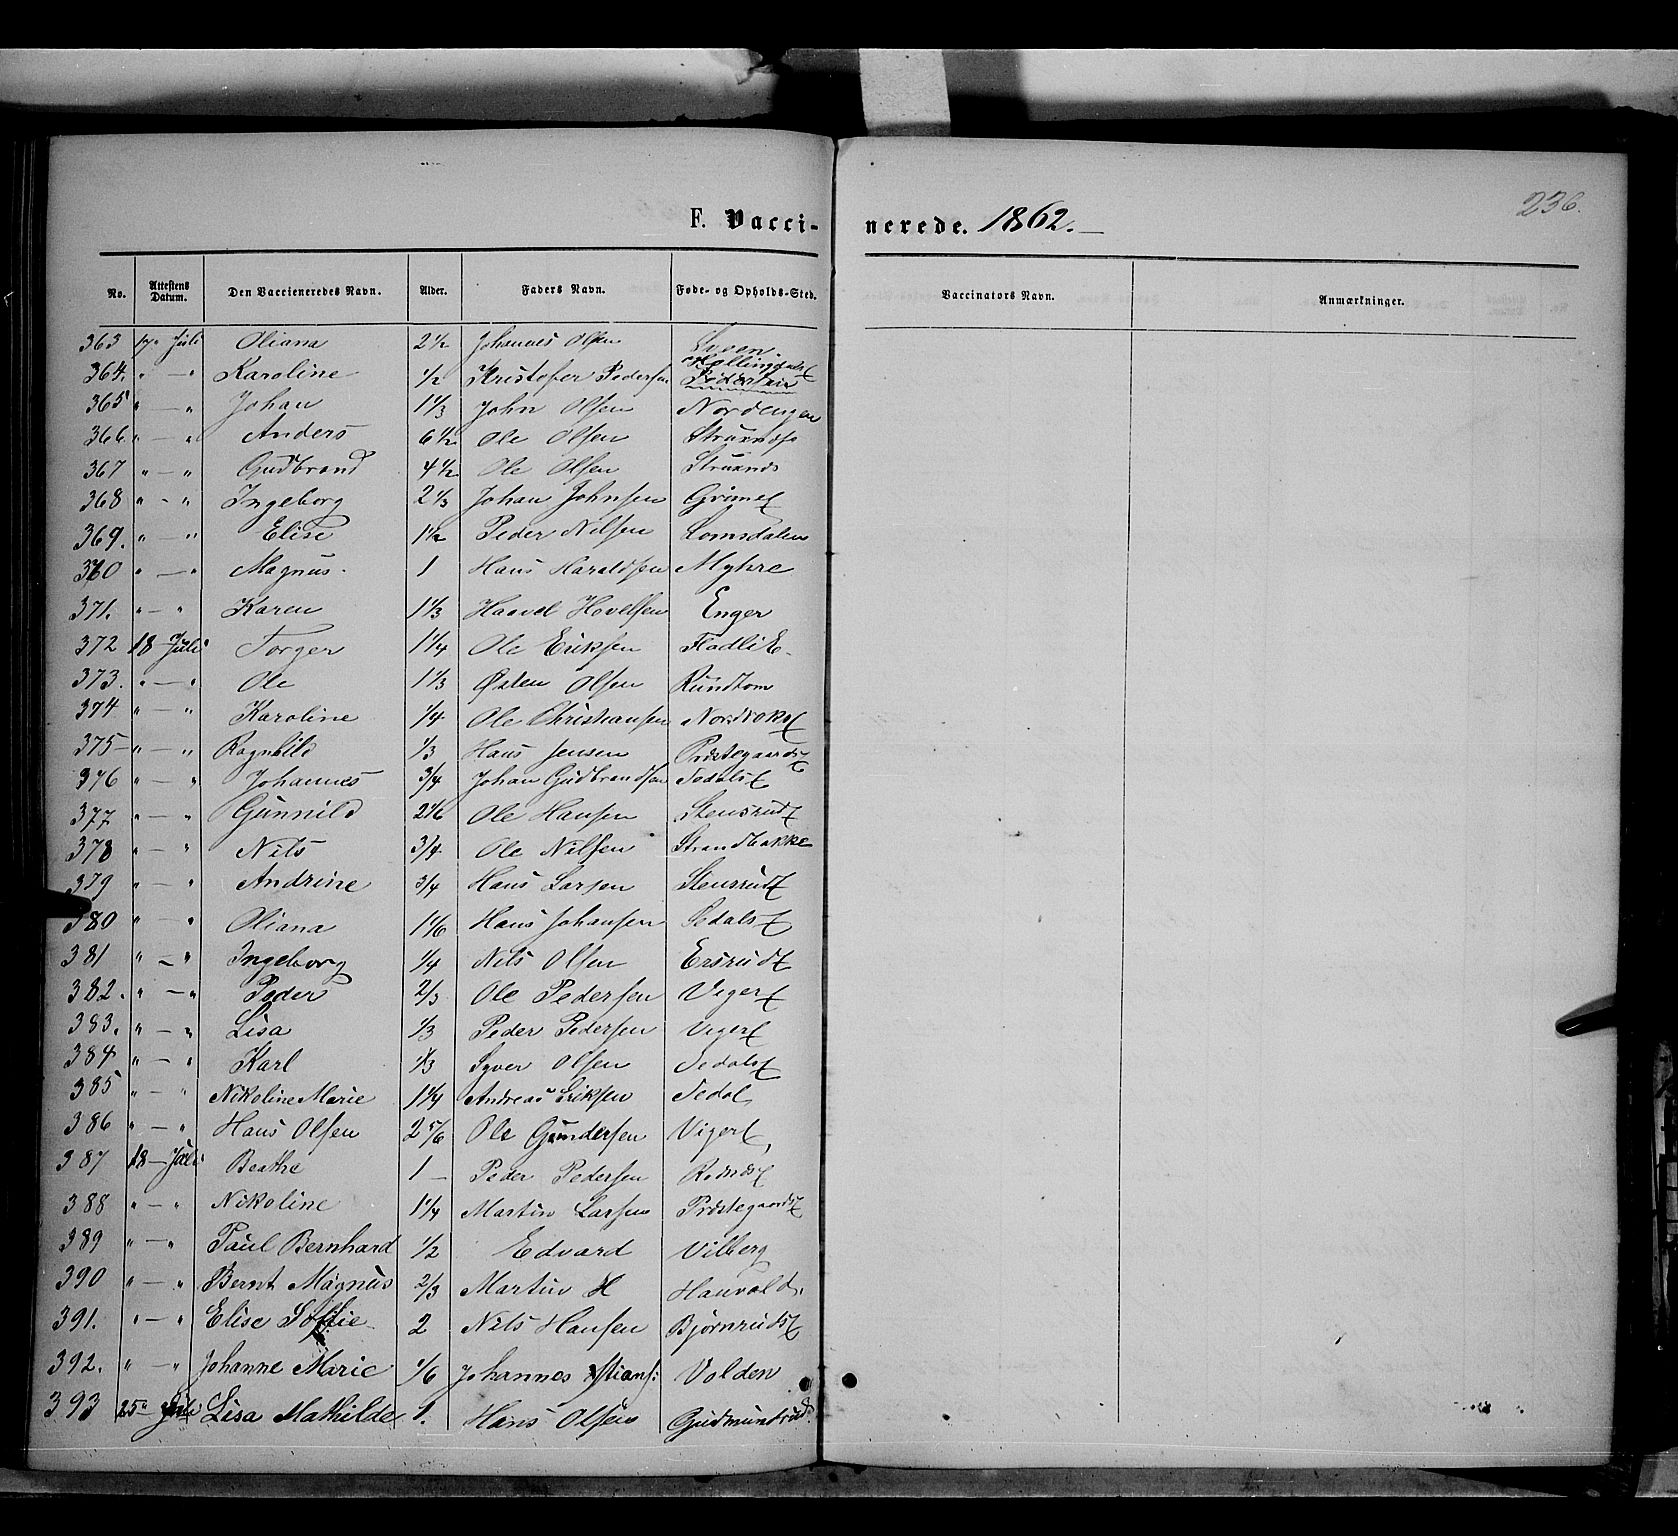 236.
F. Vacci- nerede. 1862.
No. Attestens Datum. Den Vaccieneredes Navn. Alder. Faders Navn. Føde- og Opholds-Sted. Vaccinators Navn. Anmærkninger.
363 17 Juli Oliana 2½ Johannes Olsen
364. " — " Karoline ½ Kristofer Pedersen
365 " — " Johan 1⅓ John Olsen Nordengen
366 " — " Anders 6½ Ole Olsen
367 " — " Gudbrand 4½ Ole Olsen
368 " — " Ingeborg 2⅓ Johan Johnsen
369. " — " Elise 1½ Peder Nilsen Lomsdalen
370 " — " Magnus. 1 Hans Haraldsen Myhre
371. " — " Karen 1⅓ Haavel Hovelsen Enger
372 18 Juli Torger 1¼ Ole Eriksen FladliE.
373. " — " Ole 1⅓ Østen Olsen Rundtom
374 " — " Karoline ¼ Ole Christiansen
375 — " — " Ragnhild ⅓ Hans Jensen Præstegaards
376 " — " Johannes ¾ Johan Gudbrandsen
377 " — " Gunnild 2⅙ Ole Hansen StensrudE
378 " — " Nils ¾ Ole Nilsen Strandbakke
379 " — " Andrine ¾ Hans Larsen StensrudE
380 " — " Oliana 1⅙ Hans Johansen
381 " — " Ingeborg ¼ Nils Olsen ErsrudE
382. " — " Peder ⅔ Ole Pedersen VigerE
383. " — " Lisa ⅓ Peder Pedersen VigerE
384 " — " Karl ⅓ Syver Olsen
385 " — " Nikoline Marie 1¼ Andreas Eriksen
386 " — " Hans Olsen 2⅚ Ole Gundersen VigerE
387 18 — Juli Beathe 1 — Peder Pedersen
388 " — " Nikoline 1¼ Martin Larsen Præstegaards
389 " — " Paul Bernhard ½ Edvard Vilberg
390 " — " Bernt Magnus ⅔ Martin H Hauvold.
391. " — " Elise Soffie 2 Nils Hansen BjørnrudsE
392. " — " Johanne Marie ⅙ Johannes Volden
393 25 Juli Lisa Mathilde 1. Hans Olsen Gudmundsrud.